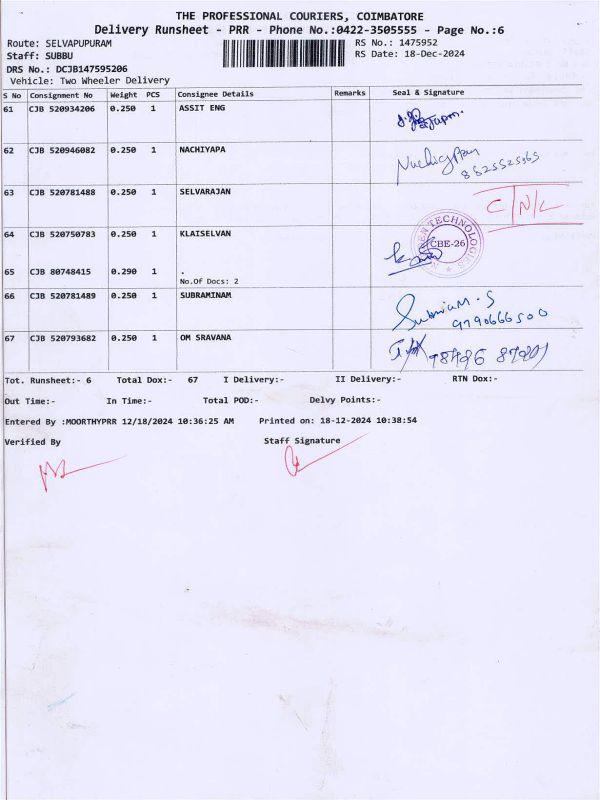 THE PROFESSIONAL COURIERS, COIMBATORE
Delivery Runsheet - PRR - Phone No.:0422-3505555 - Page No.:6
Route: SELVAPUPURAM RS No.: 1475952
Staff: SUBBU RS Date: 18-Dec-2024
DRS No.: DCJB147595206
Vehicle: Two Wheeler Delivery
S No Consignment No Weight PCS Consignee Details Remarks Seal & Signature
61 CJB 520934206 0.250 1 ASSIT ENG
62 CJB 520946082 0.250 1 NACHIYAPA
63 CJB 520781488 0.250 1 SELVARAJAN C/N/L
64 CJB 520750783 0.250 1 KLAISELVAN
TECHNOLOGIES
CBE-26
65 CJB 80748415 0.290 1 .
No.Of Docs: 2
66 CJB 520781489 0.250 1 SUBRAMINAM
9790666500
67 CJB 520793682 0.250 1 OM SRAVANA
Tot. Runsheet:- 6 Total Dox:- 67 I Delivery:- II Delivery:- RTN Dox:-
Out Time:- In Time:- Total POD:- Delvy Points:-
Entered By :MOORTHYPRR 12/18/2024 10:36:25 AM Printed on: 18-12-2024 10:38:54
Verified By Staff Signature